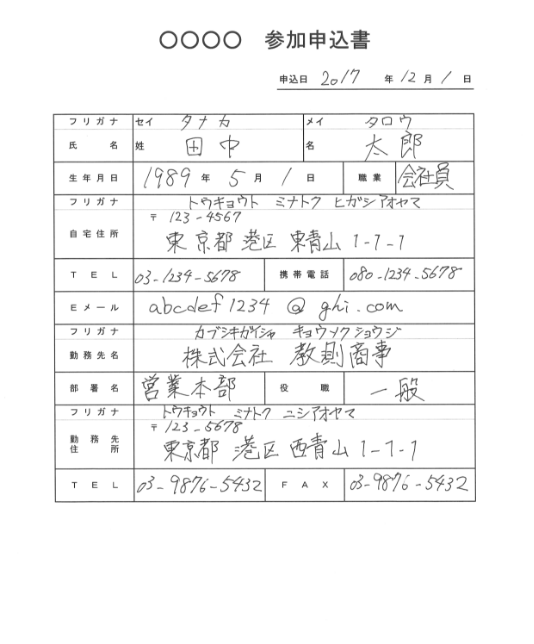 〇〇〇〇 参加申込書
申込日 2017 年 12 月 1 日
フリガナ セイ タナカ メイ タロウ
氏名 姓 田中 名 太郎
生年月日 1989 年 5 月 1 日 職業 会社員
フリガナ トウキョウト ミナトク ヒガシアオヤマ
〒 123-4567
自宅住所 東京都 港区 東青山 1-7-1
TEL 03-1234-5678 携帯電話 080-1234-5678
Eメール abcdef1234@ghi.com
フリガナ カブシキガイシャ キョウソクショウジ
勤務先名 株式会社 教則商事
部署名 営業本部 役職 一般
フリガナ トウキョウト ミナトク ニシアオヤマ
〒 123-5678
勤務先住所 東京都 港区 西青山 1-7-1
TEL 03-9876-5432 FAX 03-9876-5432